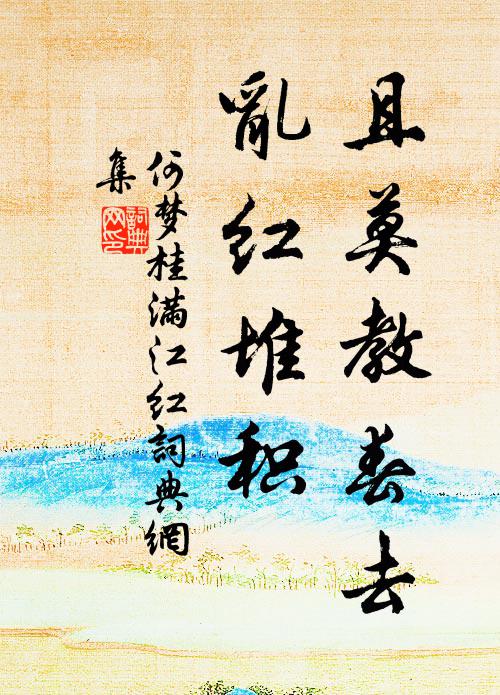 且莫教春去
亂红堆积
何梦桂满江红詞典網
集
詞典
网印